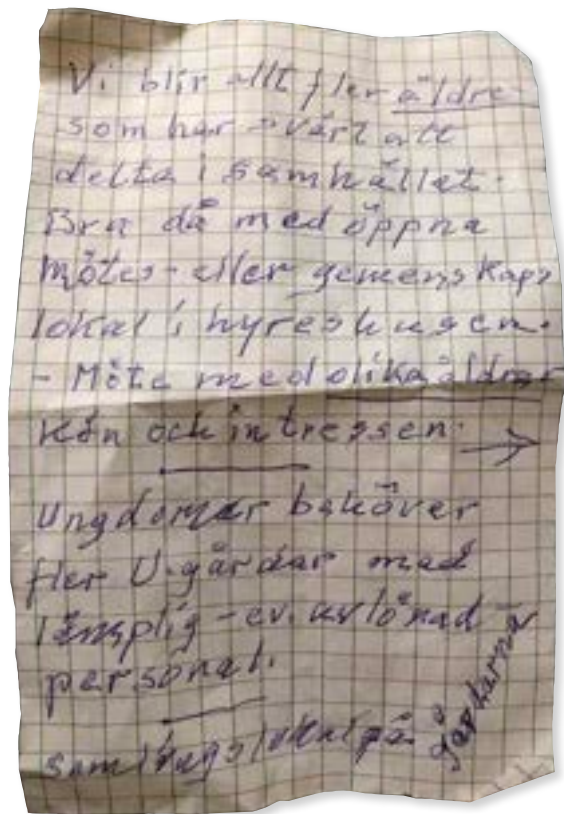 Vi blir allt fler äldre
som har svårt att
delta i samhället.
Bra då med öppna
Mötes- eller gemenskaps
lokal i hyreshusen.
- Möte med olika åldrar
Kön och intressen. →
Ungdomar behöver
fler U.gårdar med
lämplig - ev. avlönad
personal.
Samlingslokal på gårdarna